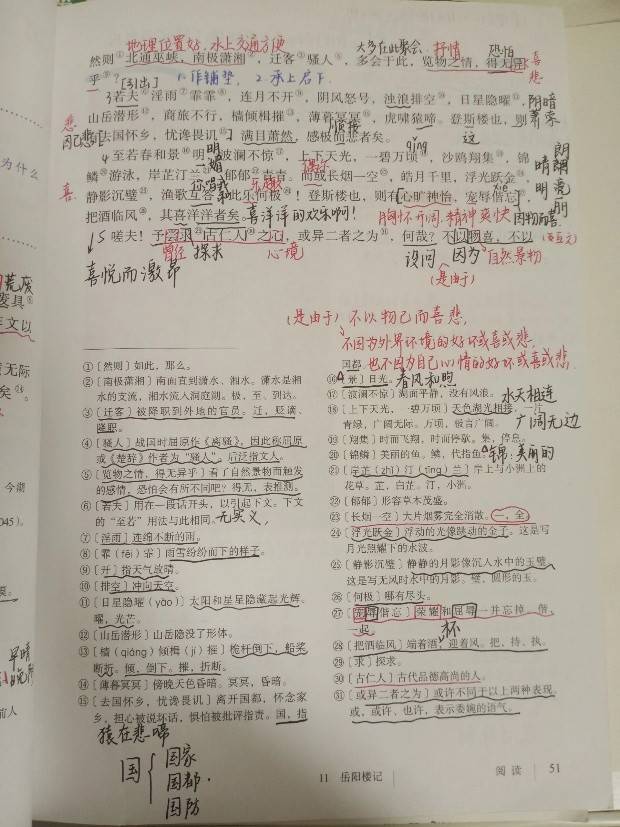 地理位置好，水上交通方便
大多在此聚会 抒情 恐怕
然则①北通巫峡，南极潇湘②，迁客③骚人④，多会于此，览物之情，得无异
喜
悲
乎⑤？[引出] 1.作铺垫，2.承上启下.
3若夫⑥淫雨⑦霏霏⑧，连月不开⑨，阴风怒号，浊浪排空⑩，日星隐曜⑪，
阴暗
山岳潜形⑫，商旅不行，樯倾楫摧⑬，薄暮冥冥⑭，虎啸猿啼。登斯楼也，则
悲
有去国怀乡，忧谗畏讥⑮，满目萧然，感极而悲者矣。
这
qīng
4至若春和景⑯明，波澜不惊⑰，上下天光，一碧万顷⑱，沙鸥翔集⑲，锦
为什么
明媚
晴明
朗润亮丽
鳞⑳游泳，岸芷汀兰㉑，郁郁㉒青青。而或长烟一空㉓，皓月千里，浮光跃金㉔，
喜
你唱我和
乐趣
静影沉璧㉕，渔歌互答，此乐何极㉖！登斯楼也，则有心旷神怡，宠辱偕忘㉗，
把酒临风㉘，其喜洋洋者矣。
喜洋洋的欢乐啊！
胸怀开阔,精神爽快
因物而喜
5嗟夫！予尝求㉙古仁人㉚之心，或异二者之为㉛，何哉？不以物喜，不以
(互文)
喜悦而激昂
曾经 探求 心境
设问 因为 自然景物
(是由于)
(是由于) 不以物己而喜悲，
不因为外界环境的好坏或喜或悲，
也不因为自己心情的好坏或喜或悲.
①〔然则〕如此，那么。
②〔南极潇湘〕南面直到潇水、湘水。潇水是湘
水的支流，湘水流入洞庭湖。极，至、到达。
③〔迁客〕被降职到外地的官员。迁，贬谪、
降职。
④〔骚人〕战国时屈原作《离骚》，因此称屈原
或《楚辞》作者为“骚人”，后泛指文人。
⑤〔览物之情，得无异乎〕看了自然景物而触发
的感情，恐怕会有所不同吧？得无，表推测。
⑥〔若夫〕用在一段话开头，以引起下文。下文
的“至若”用法与此相同。无实义，
⑦〔淫雨〕连绵不断的雨。
⑧〔霏（fēi）霏〕雨雪纷纷而下的样子。
⑨〔开〕指天气放晴。
⑩〔排空〕冲向天空。
⑪〔日星隐曜（yào）〕太阳和星星隐藏起光辉。
曜，光芒。
⑫〔山岳潜形〕山岳隐没了形体。
⑬〔樯（qiáng）倾楫（jí）摧〕桅杆倒下，船桨
断折。倾，倒下。摧，折断。
⑭〔薄暮冥冥〕傍晚天色昏暗。冥冥，昏暗。
⑮〔去国怀乡，忧谗畏讥〕离开国都，怀念家
乡，担心被说坏话，惧怕被批评指责。国，指
国都。
⑯〔景〕日光。春风和煦
⑰〔波澜不惊〕湖面平静，没有风浪。水天相连
⑱〔上下天光，一碧万顷〕天色湖光相接，一片
青绿，广阔无际。万顷，极言广阔。广阔无边
⑲〔翔集〕时而飞翔，时而停歇。集，停息。
⑳〔锦鳞〕美丽的鱼。鳞，代指鱼。锦:美丽的
㉑〔岸芷（zhǐ）汀（tīng）兰〕岸上与小洲上的
花草。芷，白芷。汀，小洲。
㉒〔郁郁〕形容草木茂盛。
㉓〔长烟一空〕大片烟雾完全消散。(一，全)
㉔〔浮光跃金〕浮动的光像跳动的金子。这是写
月光照耀下的水波。
㉕〔静影沉璧〕静静的月影像沉入水中的玉璧。
这是写无风时水中的月影。璧，圆形的玉。
㉖〔何极〕哪有尽头。
㉗〔宠辱偕忘〕荣耀和屈辱一并忘掉。偕，
一起。
杯
㉘〔把酒临风〕端着酒，迎着风。把，持、执。
㉙〔求〕探求。
㉚〔古仁人〕古代品德高尚的人。
㉛〔或异二者之为〕或许不同于以上两种表现。
或，或许、也许，表示委婉的语气。
猿在悲啼
国 国家
国都.
国防
11 岳阳楼记 阅读 51